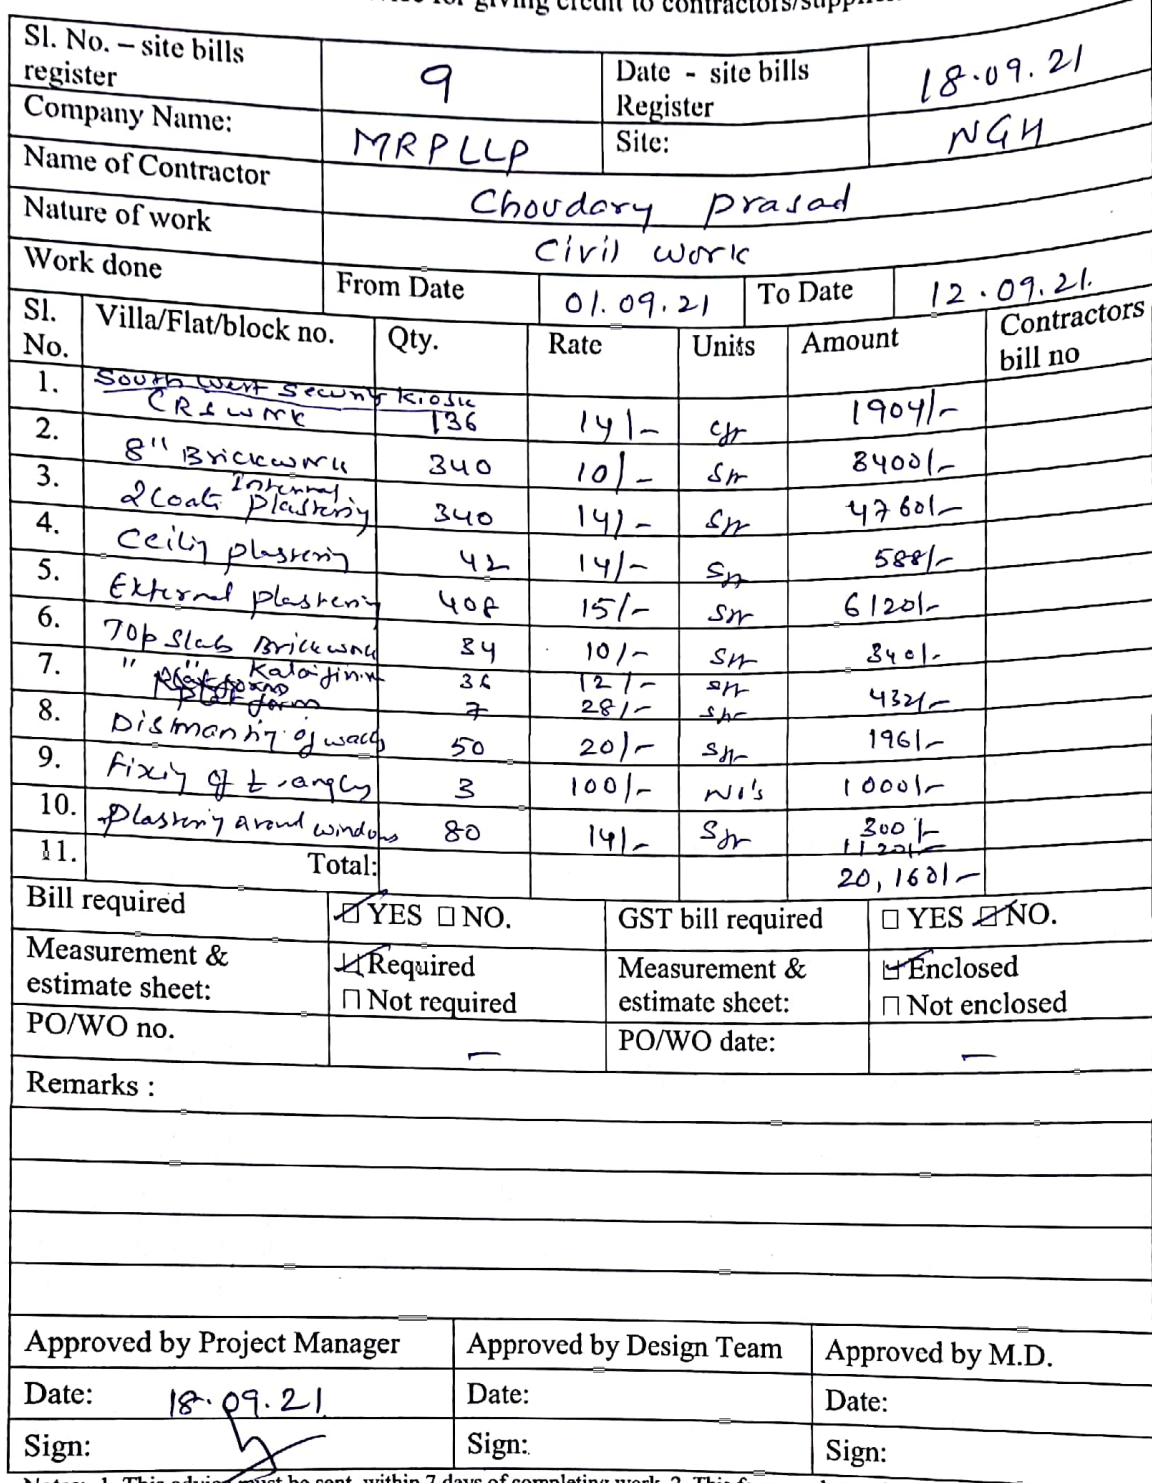 for giving credit to contractors/suppli
Sl. No. – site bills register 9 Date - site bills Register 18.09.21
Company Name: MRPLLP Site: NGH
Name of Contractor Choudary Prasad
Nature of work Civil work
Work done From Date 01.09.21 To Date 12.09.21.
Sl. No. Villa/Flat/block no. Qty. Rate Units Amount Contractors bill no
South West Security Kiosk
1. CRS work 136 14/- cft 1904/-
2. 8" Brickwork 340 10/- Sft 3400/-
3. 2 Coats Internal Plastering 340 14/- Sft 4760/-
4. Ceiling plastering 42 14/- Sft 588/-
5. External plastering 408 15/- Sft 6120/-
6. Top Slab Brickwork 34 10/- Sft 340/-
7. " " 36 12/- Sft 432/-
Platform 7 28/- Sft 196/-
8. Dismantling of walls 50 20/- Sft 1000/-
9. Fixing of L-angles 3 100/- No's 300/-
10. Plastering around windows 80 14/- Sft 1120/-
11. Total: 20,160/-
Bill required YES NO. GST bill required YES NO.
Measurement & estimate sheet: Required Not required Measurement & estimate sheet: Enclosed Not enclosed
PO/WO no. – PO/WO date: –
Remarks :
Approved by Project Manager Approved by Design Team Approved by M.D.
Date: 18.09.21 Date: Date:
Sign: Sign: Sign: